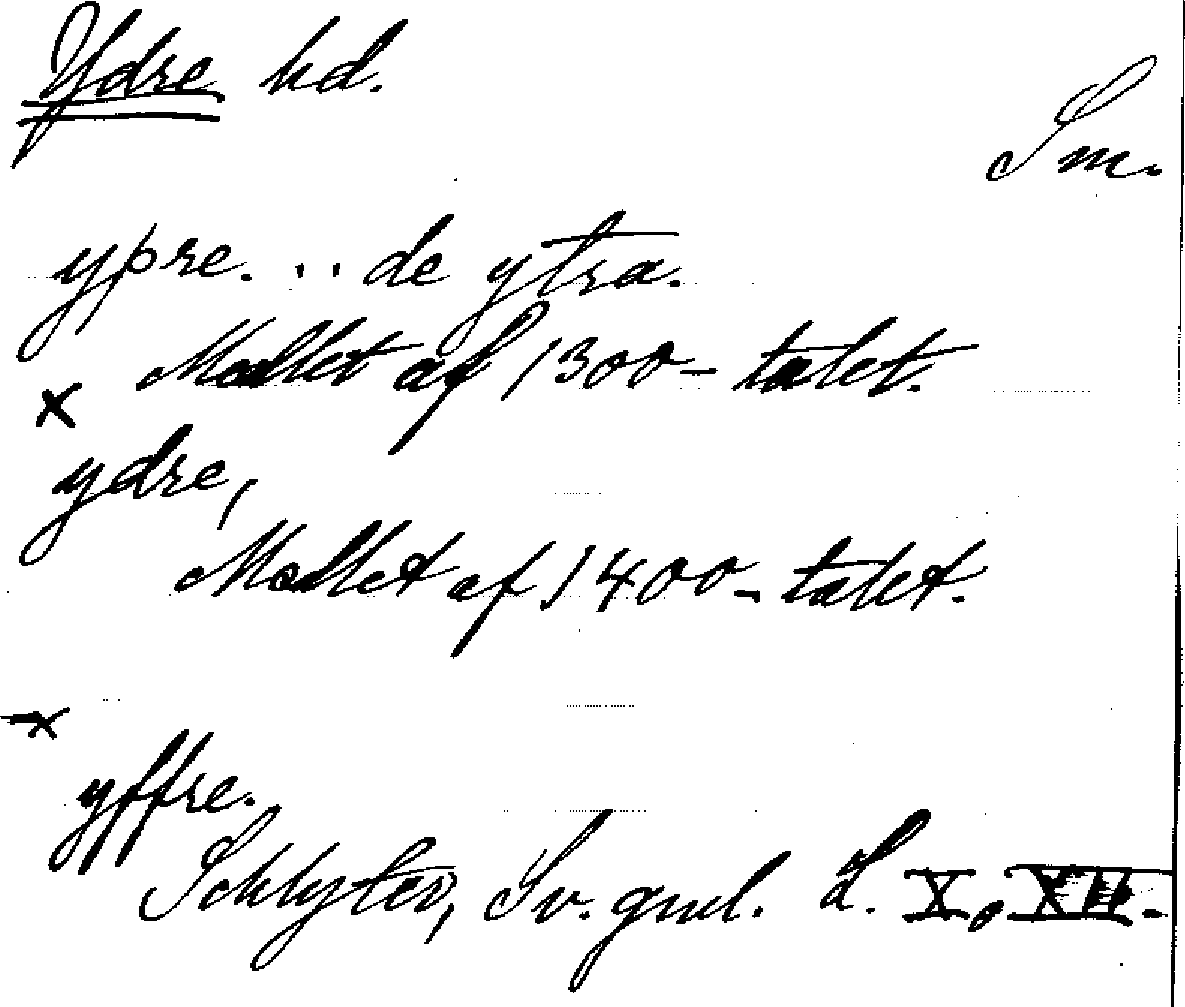 Ydre hd.
Sm.
yþre. .. de ytra.
Medlet af 1300-talet.
x
ydre,
Medlet af 1400-talet.
x
yffre.
Schlyter, Sv. gml. L. X, XII.